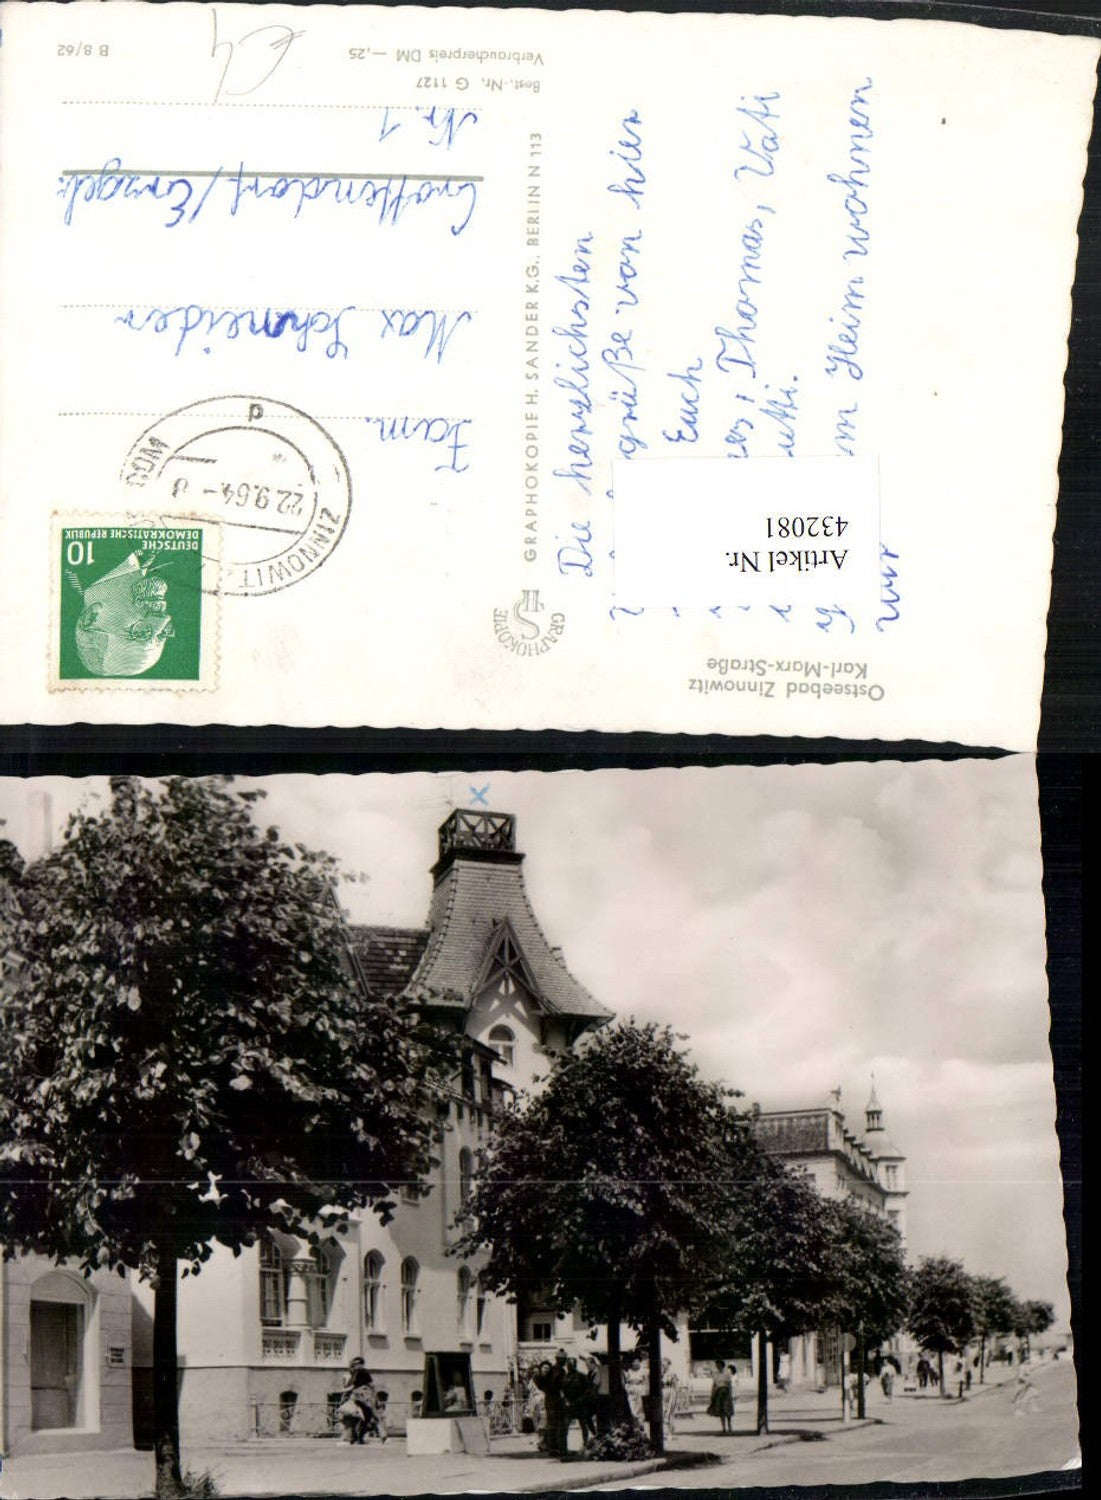 Ostseebad Zinnowitz
Karl-Marx-Straße
Die herzlichsten
grüße von hier
Euch
Thomas, Vati
Heim wohnen
wir
Artikel Nr.
432081
GRAPHOKOPIE
HS
GRAPHOKOPIE H. SANDER K.G., BERLIN N 113
DEUTSCHE
DEMOKRATISCHE REPUBLIK
10
ZINNOWITZ
22.9.64
Fam.
Max Schneider
Crottendorf/Erzgeb.
Nr. 1
Best.-Nr. G 1127
Verbraucherpreis DM —,25
B 8/62
X